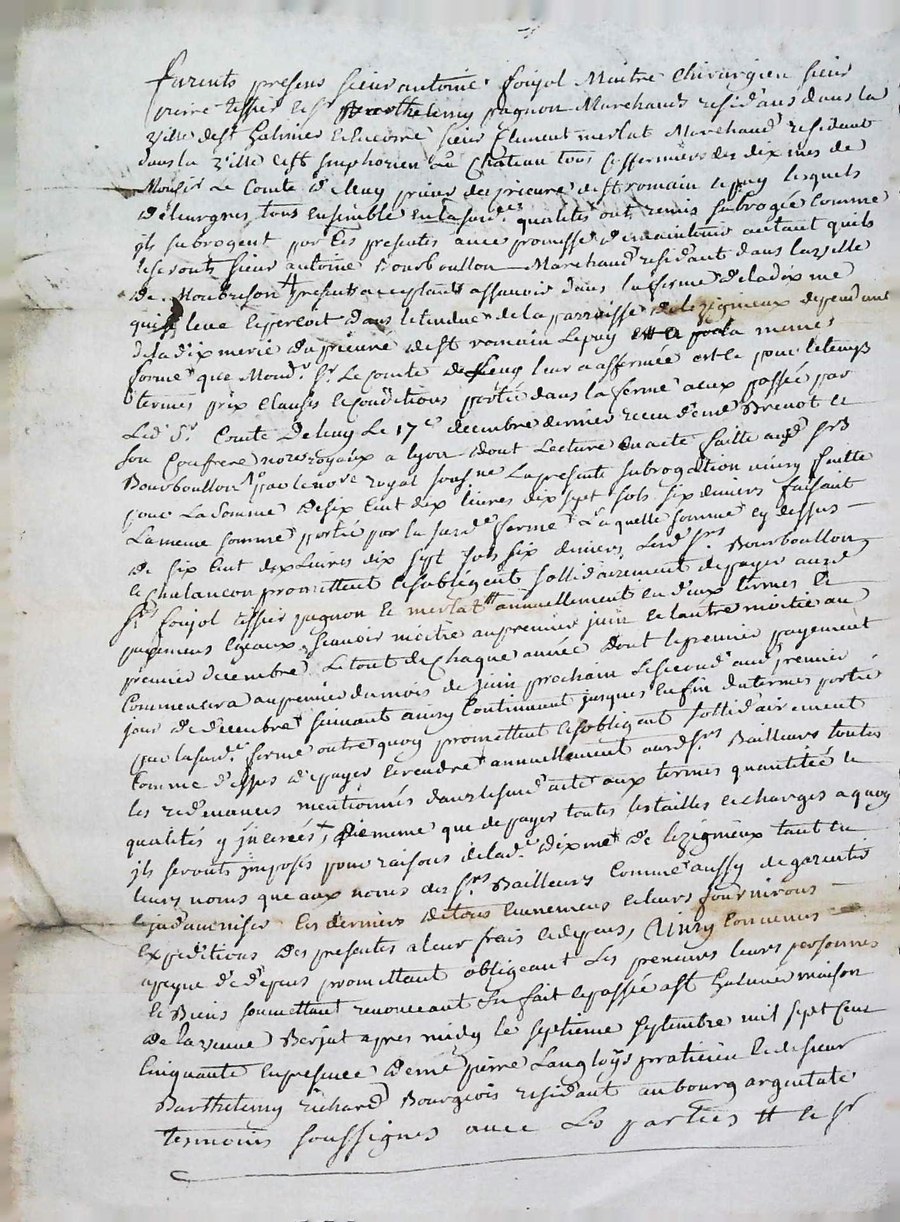 furents presens sieur antoine foujol Maitre Chirurgien sieur
pierre tessier le Sr Barthelemy pagnon Marchands residans dans la
ville de St Galmier sieur Clement merlat Marchand residant
dans la ville de St Simphorien le Chateau tous fermiers des dixmes de
Monsr Le Comte de fleury prieur du prieuré de St romain le puy lesquels
de leur gres tous ensemble qualités ont remis subrogée comme
ils subrogent par ces presentes avec promesse de maintenir autant quils
le seront sieur antoine Bourboullon Marchand residant dans la ville
de Montbrison present acceptant assavoir dans la ferme de la dixme
qui se leve et perçoit dans letendue de la parroisse de lezigneux dependant
de la dixmerie du prieuré de St romain le puy et a la meme
forme que Mond. Sr Le Comte de fleury leur a affermée est ce pour le temps
termes prix clauses et conditions portée dans la ferme a eux passée par
Led. Sr Comte de fleury Le 17e decembre dernier receu Brenot et
son Confrere nores royaux a lyon dont Lecture faitte aud Srs
Bourboullon par le nore royal soussigne La presente subrogation ainsy faitte
pour La somme de six cent dix livres dix sept sols six deniers faisant
La meme somme portée par la susd. ferme Laquelle somme cy dessus
de six cent dix Livres dix sept sols six deniers Lesd Srs Bourboullon
et Chalancon promettent et sobligent sollidairement de payer ausd
Srs foujol tessier pagnon et merlat # annuellement en deux termes et
payemens egaux scavoir moitié au premier juin et lautre moitié au
premier decembre Le tout de Chaque année dont le premier payement
Commencera au premier du mois de juin prochain Le second aud premier
jour de decembre suivant ainsy Continuant jusques en fin du termes portée
par la susd. ferme outre quoy promettent et sobligent sollidairement
comme dessus de payer et rendre annuellement ausd Srs Bailleurs toutes
les redevances mentionnés dans le susd acte aux termes quantitée et
qualités y incerés + de meme que de payer toutes les tailles et charges a quoy
ils seront imposés pour raisons de lad. dixme de lezigneux tant en
leurs noms que aux noms des Srs Bailleurs Comme aussy de garentir
les derniers de tous evenemens et leurs fourniront
expeditions des presentes a leur frais et depens, Ainsy Convenus
a peyne de depens promettant obligeant Les preneurs leurs personnes
et Biens soumettant renonceant fait et passée a St Galmier maison
de la veuve Berjat apres midy le septieme septembre mil sept Cent
Cinquante en presence de me pierre Langloys praticien et de sieur
Barthelemy richard Bourgeois residant au bourg argentalt
tesmoins soussignes avec Les parties # le Sr